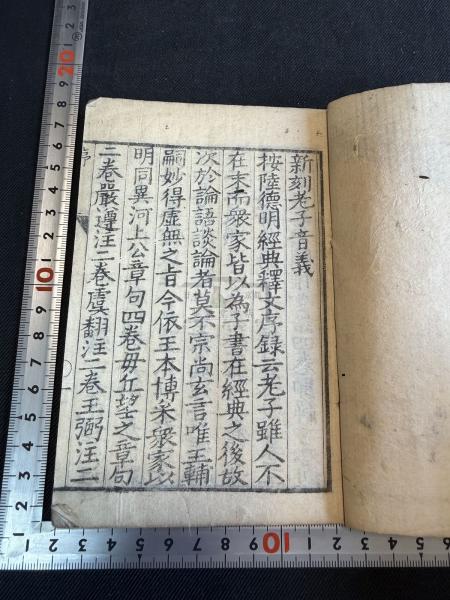 新刻老子音義
按陸德明經典釋文序錄云老子雖人不
在末而衆家皆以為子書在經典之後故
次於論語談論者莫不宗尚玄言唯王輔
嗣妙得虛無之旨今依王本博采衆家以
明同異河上公章句四卷毋丘望之章句
二卷嚴遵注二卷虞翻注二卷王弼注二
序